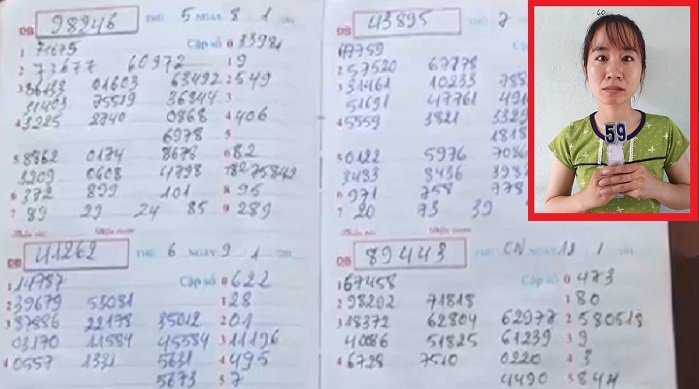 ĐB 98246 THỨ 5 NGÀY 8 1
1 71675 Cặp số 0 33981
2 73677 60972 1 9
3 86133 01603 63492 2 549
31403 75519 36844 3
4 3225 2740 0868 4 406
6978 5
5 8862 0174 8678 6 82
3209 0608 4798 75849
6 372 899 101 8 95
7 89 29 24 85 9 289
ĐB 43895 THỨ 7
17759
2 57520 67778
3 31461 10233
51691 47761 491
4 5559 3821 3329
1818
5 0122 5976 7086
3433 8436 398
6 971 758 778
7 20 73 39
ĐB 41262 THỨ 6 NGÀY 9 1
1 14787 Cặp số 0 622
2 39679 53081 1 28
3 87886 22178 35012 2 01
03170 11584 45584 3 11196
4 0557 1331 5631 4 495
5673 5 7
ĐB 89443 THỨ CN NGÀY 1
1 67458 Cặp số 0 473
2 98202 71818 1 80
3 18372 62804 62977 2 580518
4086 51825 61239 3 9
4 6728 7510 0220 4 3
4490 5 844
60
59